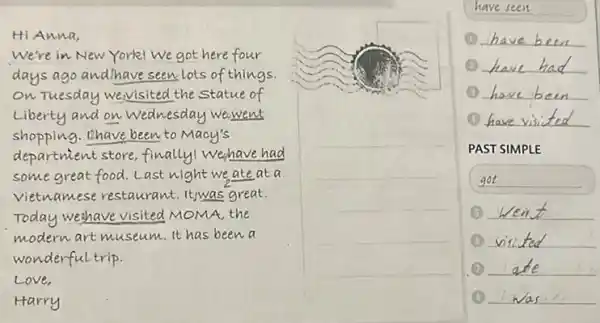 Hi Anna,
We're in New York! We got here four
days ago and have seen lots of things.
On Tuesday we visited the Statue of
Liberty and on Wednesday we went
shopping. I have been to Macy's
department store, finally! We have had
some great food. Last night we ate at a
Vietnamese restaurant. It was great.
2
Today we have visited MOMA, the
modern art museum. It has been a
wonderful trip.
Love,
Harry
have seen
1 have been
2 have had
3 have been
4 have visited
PAST SIMPLE
got
1 went
2 visited
3 ate
4 was